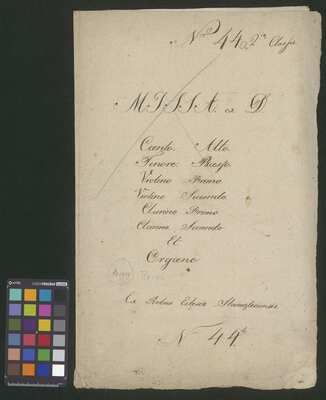 Nro 44. 2dæ Classis
M.I.S.S.A. ex D.
Canto. Alto.
Tenore. Basso.
Violino Primo
Violino Secundo
Clarino Primo
Clarino Secundo
Et
Organo
Ex Rebus Ecclesiæ
N 44